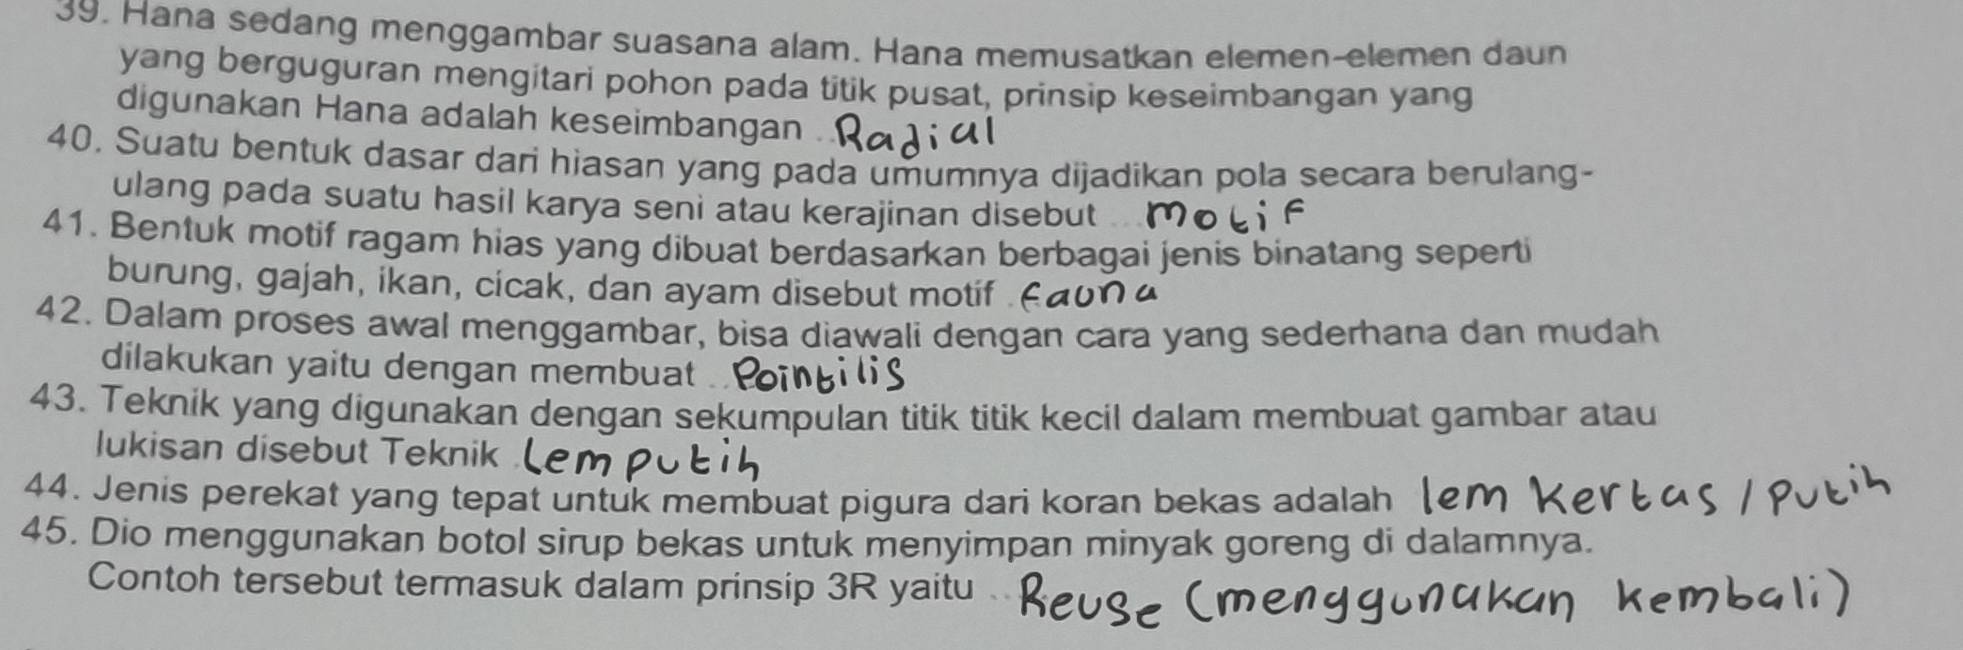 39. Hana sedang menggambar suasana alam. Hana memusatkan elemen-elemen daun
yang berguguran mengitari pohon pada titik pusat, prinsip keseimbangan yang
digunakan Hana adalah keseimbangan .. Radial
40. Suatu bentuk dasar dari hiasan yang pada umumnya dijadikan pola secara berulang-
ulang pada suatu hasil karya seni atau kerajinan disebut ... motif
41. Bentuk motif ragam hias yang dibuat berdasarkan berbagai jenis binatang seperti
burung, gajah, ikan, cicak, dan ayam disebut motif . fauna
42. Dalam proses awal menggambar, bisa diawali dengan cara yang sederhana dan mudah
dilakukan yaitu dengan membuat .. Pointilis
43. Teknik yang digunakan dengan sekumpulan titik titik kecil dalam membuat gambar atau
lukisan disebut Teknik . Lem putih
44. Jenis perekat yang tepat untuk membuat pigura dari koran bekas adalah lem kertas / putih
45. Dio menggunakan botol sirup bekas untuk menyimpan minyak goreng di dalamnya.
Contoh tersebut termasuk dalam prinsip 3R yaitu ... Reuse (menggunakan kembali)